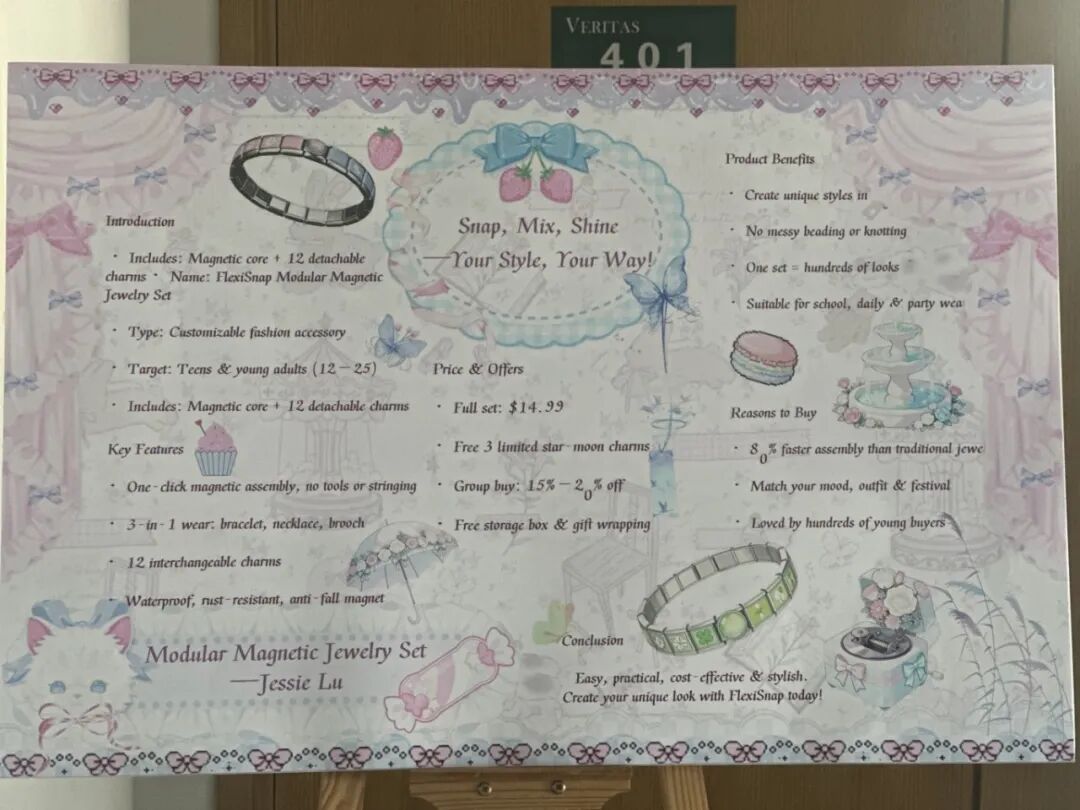 VERITAS
401
Snap, Mix, Shine
—Your Style, Your Way!
Introduction
· Includes: Magnetic core + 12 detachable
charms · Name: FlexiSnap Modular Magnetic
Jewelry Set
· Type: Customizable fashion accessory
· Target: Teens & young adults (12－25)
· Includes: Magnetic core + 12 detachable charms
Key Features
· One-click magnetic assembly, no tools or stringing
· 3-in-1 wear: bracelet, necklace, brooch
· 12 interchangeable charms
· Waterproof, rust-resistant, anti-fall magnet
Modular Magnetic Jewelry Set
—Jessie Lu
Price & Offers
· Full set: $14.99
· Free 3 limited star-moon charms
· Group buy: 15%－20% off
· Free storage box & gift wrapping
Product Benefits
· Create unique styles in
· No messy beading or knotting
· One set = hundreds of looks
· Suitable for school, daily & party wea
Reasons to Buy
· 80% faster assembly than traditional jewe
· Match your mood, outfit & festival
· Loved by hundreds of young buyers
Conclusion
Easy, practical, cost-effective & stylish.
Create your unique look with FlexiSnap today!